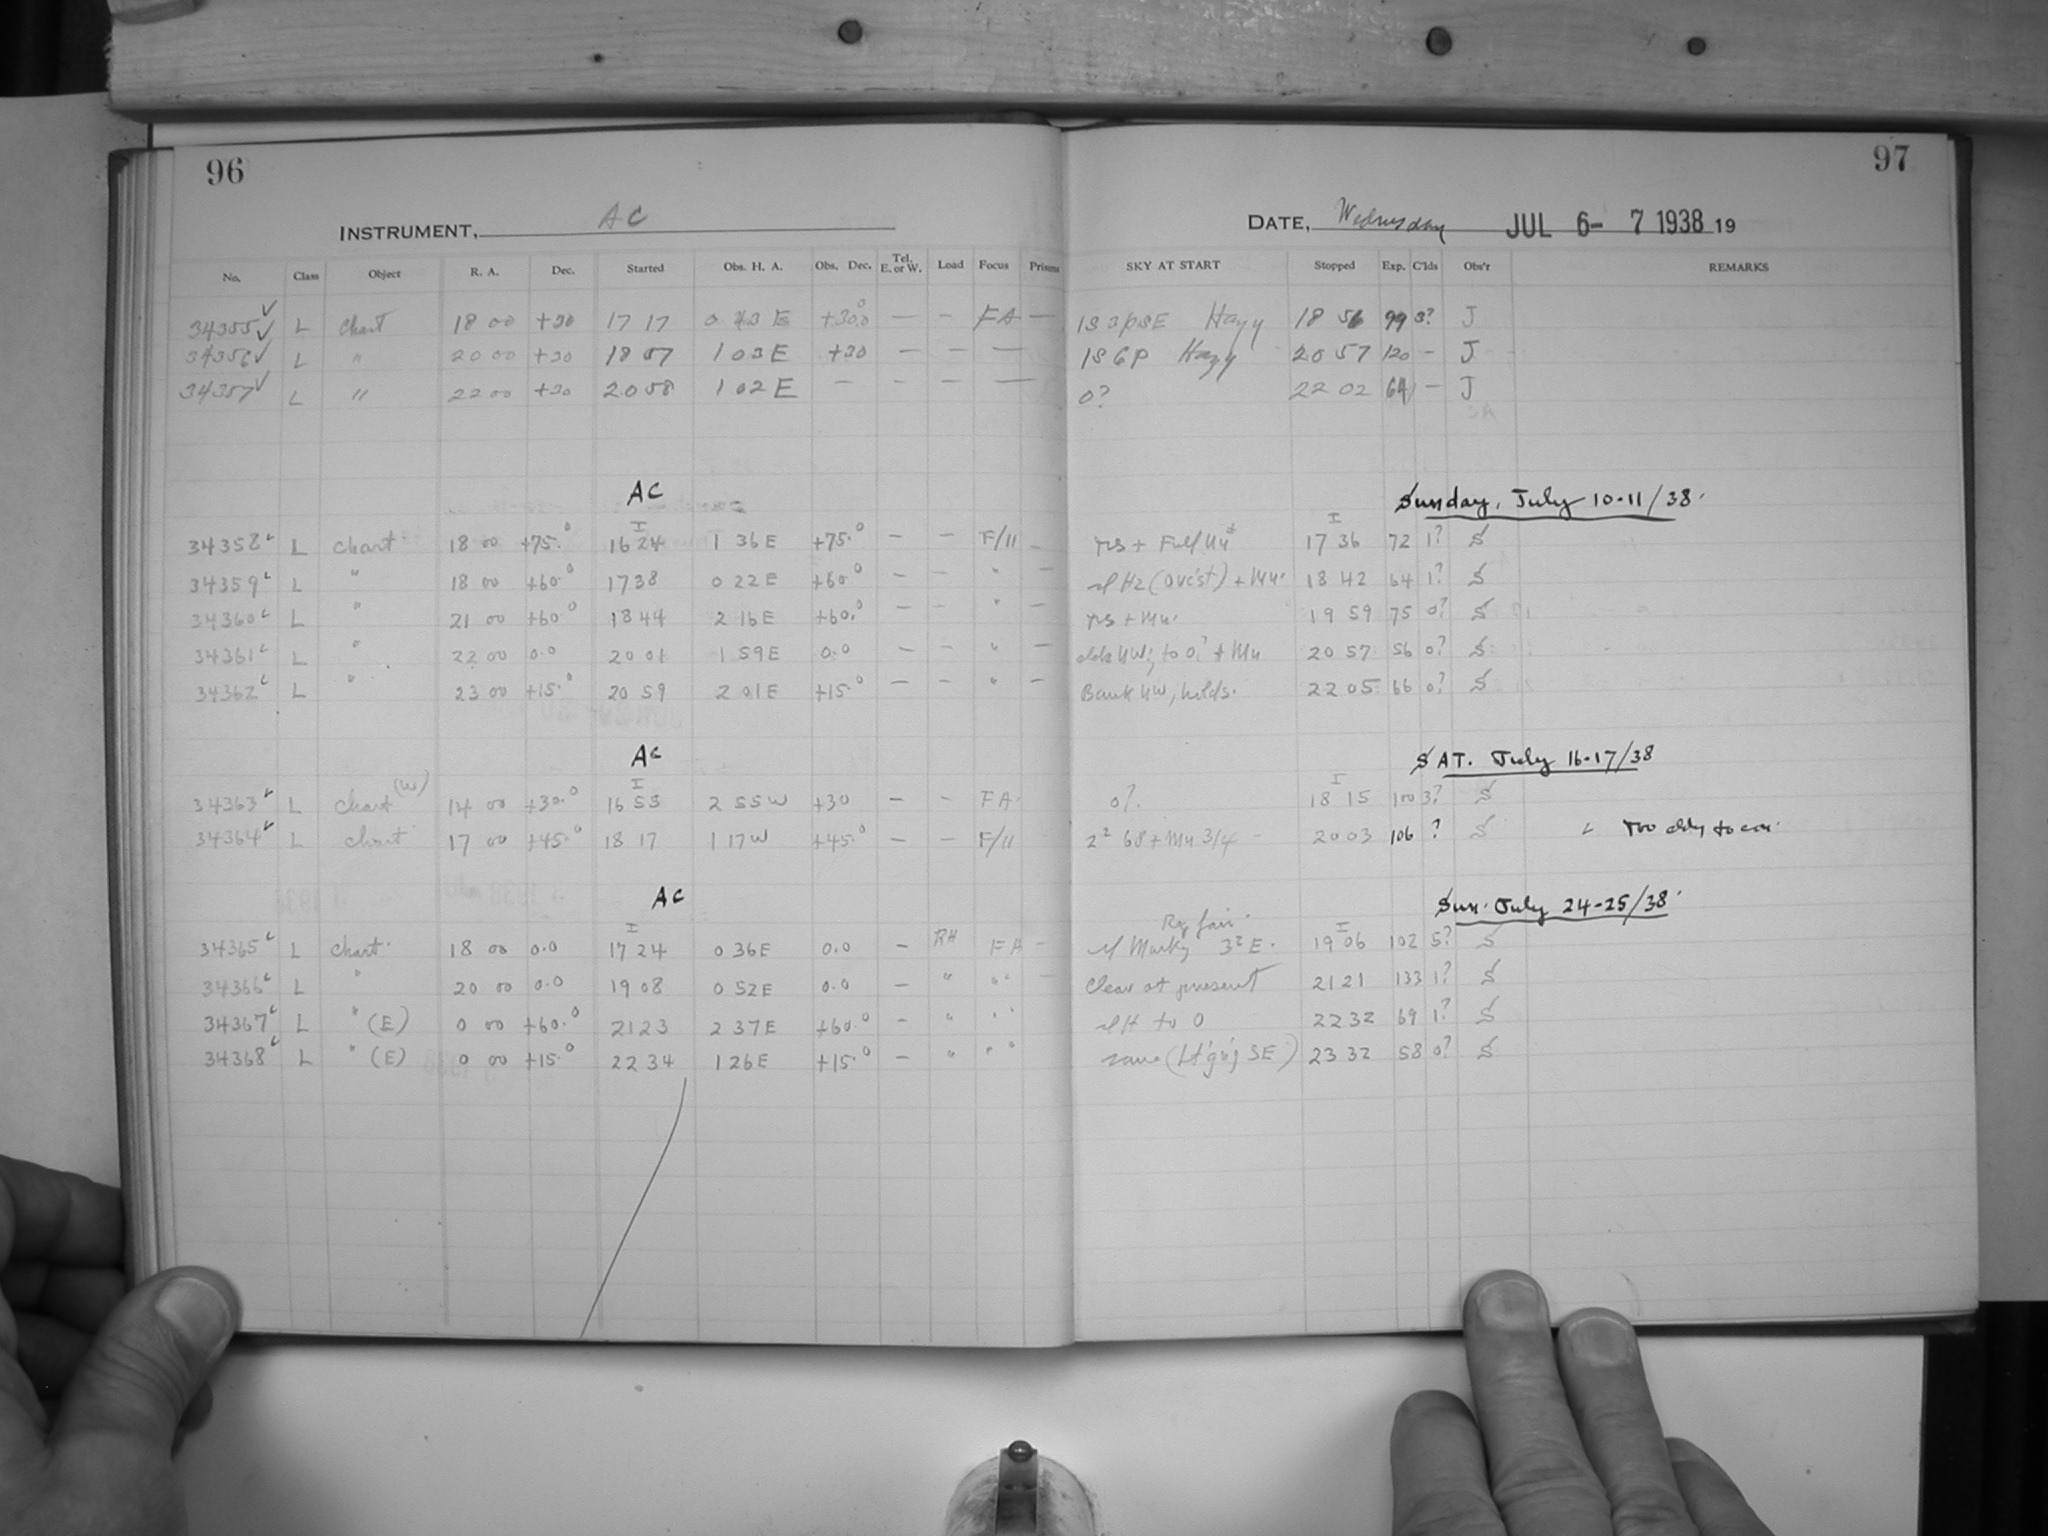 96
97
INSTRUMENT, AC
DATE, Wednesday JUL 6- 7 1938 19
No. Class Object R. A. Dec. Started Obs. H. A. Obs. Dec. Tel. E. or W. Load Focus Prisms SKY AT START Stopped Exp. C'lds Obs'r REMARKS
34355 L Chart 18 00 +30 17 17 0 43 E +30.0 — — FA — Hazy 18 56 99 3? J
34356 L " 20 00 +30 18 57 1 03 E +30 — — — 1S 6P Hazy 20 57 120 — J
34357 L " 22 00 +30 20 58 1 02 E — — — — 0? 22 02 64 — J
AC Sunday, July 10-11/38.
34358 L Chart 18 00 +75.0 16 24 1 36 E +75.0 — — F/11 — 17 36 72 1? S
34359 L " 18 00 +60.0 17 38 0 22 E +60.0 — — " — 18 42 64 1? S
34360 L " 21 00 +60.0 18 44 2 16 E +60.0 — — " — 19 59 75 0? S
34361 L " 22 00 0.0 20 01 1 59 E 0.0 — — " — 20 57 56 0? S
34362 L " 23 00 +15.0 20 59 2 01 E +15.0 — — " — Bank NW, holds. 22 05 66 0? S
AC SAT. July 16-17/38
34363 L Chart (W) 14 00 +30.0 16 55 2 55 W +30 — — FA 0?. 18 15 100 3? S
34364 L Chart 17 00 +45.0 18 17 1 17 W +45.0 — — F/11 20 03 106 ? S Too cldy to con.
AC Sun. July 24-25/38.
34365 L Chart 18 00 0.0 17 24 0 36 E 0.0 — RH FA — 19 06 102 5? S
34366 L " 20 00 0.0 19 08 0 52 E 0.0 — " " — Clear at present 21 21 133 1? S
34367 L " (E) 0 00 +60.0 21 23 2 37 E +60.0 — " " sl H to 0 22 32 69 1? S
34368 L " (E) 0 00 +15.0 22 34 1 26 E +15.0 — " " same (Lt'g'g SE) 23 32 58 0? S